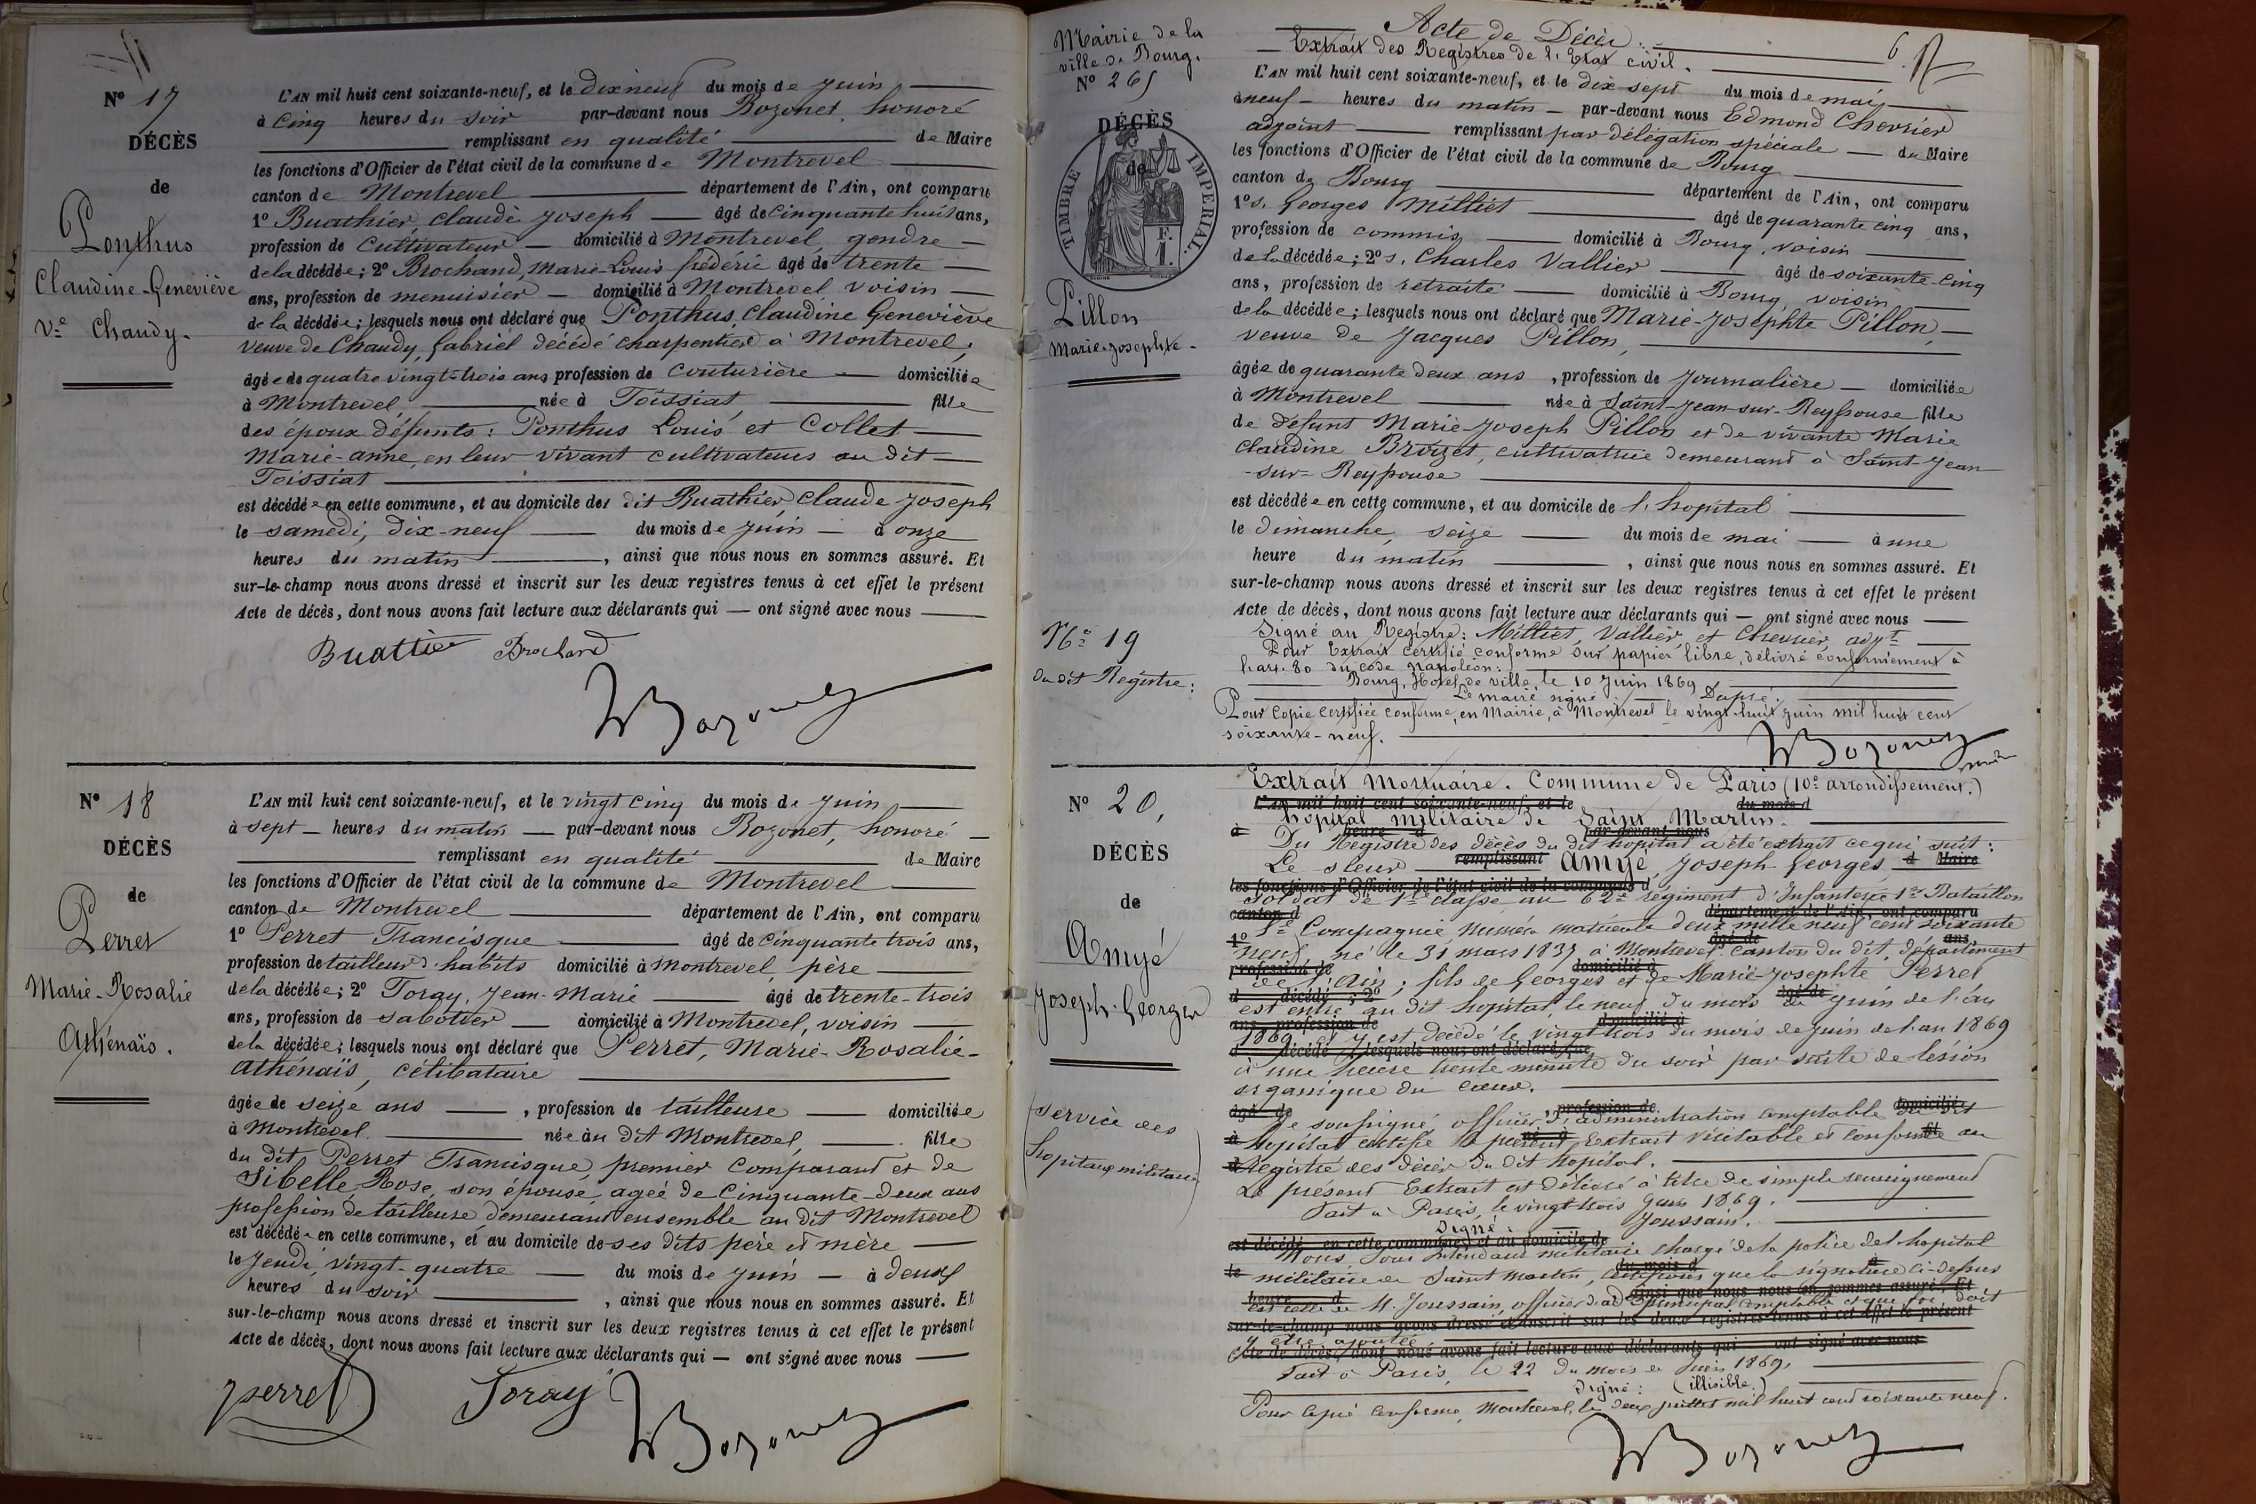 N° 17
DÉCÈS
de
Ponthus
Claudine-Geneviève
Vve Chaudy.
L'AN mil huit cent soixante-neuf, et le dix neuf du mois de Juin
à Cinq heures du soir par-devant nous Bozonet, honoré
remplissant en qualité de Maire
les fonctions d'Officier de l'état civil de la commune de Montrevel
canton de Montrevel département de l'Ain, ont comparu
1° Buathier, claude Joseph âgé de Cinquante huit ans,
profession de Cultivateur domicilié à Montrevel, gendre
de la décédée; 2° Brochand, Marie Louis frédéric âgé de trente
ans, profession de menuisier domicilié à Montrevel, voisin
de la décédée; lesquels nous ont déclaré que Ponthus, Claudine Geneviève
veuve de Chaudy, Gabriel décédé charpentier à Montrevel,
âgée de quatre vingt-trois ans profession de Couturière domiciliée
à Montrevel née à Foissiat fille
des époux défunts: Ponthus Louis et Collet
Marie-anne, en leur vivant cultivateurs au dit
Foissiat
est décédée en cette commune, et au domicile des dit Buathier Claude Joseph
le samedi, dix-neuf du mois de Juin à onze
heures du matin, ainsi que nous nous en sommes assuré. Et
sur-le-champ nous avons dressé et inscrit sur les deux registres tenus à cet effet le présent
Acte de décès, dont nous avons fait lecture aux déclarants qui — ont signé avec nous
Buattier Brochand
Bozonet
N° 18
DÉCÈS
de
Perret
Marie-Rosalie
Athénaïs.
L'AN mil huit cent soixante-neuf, et le vingt cinq du mois de Juin
à sept heures du matin par-devant nous Bozonet, honoré
remplissant en qualité de Maire
les fonctions d'Officier de l'état civil de la commune de Montrevel
canton de Montrevel département de l'Ain, ont comparu
1° Perret Francisque âgé de cinquante trois ans,
profession de tailleur d'habits domicilié à Montrevel, père
de la décédée; 2° Toray, Jean-Marie âgé de trente-trois
ans, profession de sabotier domicilié à Montrevel, voisin
de la décédée; lesquels nous ont déclaré que Perret, Marie-Rosalie-
Athénaïs, célibataire
âgée de seize ans, profession de tailleuse domiciliée
à Montrevel née au dit Montrevel, fille
du dit Perret Francisque, premier comparant et de
Sibelle Rose, son épouse, agée de Cinquante-deux ans
profession de tailleuse, demeurant ensemble au dit Montrevel
est décédée en cette commune, et au domicile de ses dits père et mère
le Jeudi, vingt-quatre du mois de Juin à deux
heures du soir, ainsi que nous nous en sommes assuré. Et
sur-le-champ nous avons dressé et inscrit sur les deux registres tenus à cet effet le présent
Acte de décès, dont nous avons fait lecture aux déclarants qui — ont signé avec nous
perret Toray
Bozonet
Mairie de la
ville de Bourg.
N° 265
DÉCÈS
de
TIMBRE IMPERIAL.
F.
1.
Pillon
Marie-Josephte
N° 19
du dit Registre:
Acte de Décès.
6
Extrait des Registres de l'Etat civil.
L'AN mil huit cent soixante-neuf, et le dix sept du mois de mai
à neuf heures du matin par-devant nous Edmond Chevrier
adjoint remplissant par délégation spéciale du Maire
les fonctions d'Officier de l'état civil de la commune de Bourg
canton de Bourg département de l'Ain, ont comparu
1° s. Georges Milliet âgé de quarante cinq ans,
profession de commis domicilié à Bourg, voisin
de la décédée; 2° s. Charles Vallier âgé de soixante-cinq
ans, profession de retraité domicilié à Bourg, voisin
de la décédée; lesquels nous ont déclaré que Marie-Josephte Pillon,
veuve de Jacques Pillon,
âgée de quarante deux ans, profession de Journalière domiciliée
à Montrevel née à Saint-Jean-sur-Reyssouse fille
de défunt Marie-Joseph Pillon et de vivante Marie
Claudine Broizet, cultivatrice demeurant à Saint-Jean
-sur-Reyssouse
est décédée en cette commune, et au domicile de l'hopital
le dimanche, seize du mois de mai à une
heure du matin, ainsi que nous nous en sommes assuré. Et
sur-le-champ nous avons dressé et inscrit sur les deux registres tenus à cet effet le présent
Acte de décès, dont nous avons fait lecture aux déclarants qui — ont signé avec nous
Signé au Registre: Milliet, Vallier et Chevrier, adjt
Pour Extrait certifié conforme sur papier libre, délivré conformément à
l'art. 80 du code Napoléon:
Bourg, Hotel de ville, le 10 Juin 1869
Le maire signé
Pour copie certifiée conforme, en Mairie, à Montrevel le vingt-huit juin mil huit cent
soixante-neuf.
Bozonet
N° 20,
DÉCÈS
de
Amyé
Joseph-Georges
(Service des
hopitaux militaires)
Extrait Mortuaire. Commune de Paris (10e arrondissement.)
L'AN mil huit cent soixante-neuf, et le du mois d
hopital militaire de Saint Martin.
à heure d par-devant nous
Du Registre des décès du dit hopital a été extrait ce qui suit:
Le sieur remplissant Amyé, Joseph-Georges, d Maire
les fonctions d'Officier de l'état civil de la commune d
soldat de 1re classe au 62e régiment d'Infanterie 1er Bataillon
canton d département de l'Ain, ont comparu
Compagnie numéro matricule deux mille neuf cent soixante
1° âgé de ans,
neuf, né le 31 mars 1837 à Montrevel canton du dit, département
profession de domicilié à
de l'Ain; fils de Georges et de Marie-Josephte Perret
d décédé ; 2° âgé de
est entré au dit hopital, le neuf du mois de juin de l'an
ans, profession de domicilié à
1869 et y est décédé le vingt trois du mois de Juin de l'an 1869
d décédé ; lesquels nous ont déclaré que
à une heure trente minute du soir par suite de lésion
organique du cœur.
âgé de profession de domicilié
Je soussigné, officier d'administration comptable du dit
hopital certifie le présent Extrait véritable et conforme au
registre des décès du dit hopital.
Le présent Extrait est délivré à titre de simple renseignement
Fait à Paris, le vingt trois Juin 1869.
Signé: Joussain.
est décédé en cette commune, et au domicile de
Nous Sous Intendant militaire chargé de la police de l'hopital
le du mois d à
militaire de Saint Martin, certifions que la signature ci-dessus
heure d ainsi que nous nous en sommes assuré. Et
est celle de M. Joussain, officier d'ad principal comptable et que foi doit
sur-le-champ nous avons dressé et inscrit sur les deux registres tenus à cet effet le présent
y être ajoutée
Acte de décès, dont nous avons fait lecture aux déclarants qui ont signé avec nous
Fait à Paris, le 22 du mois de Juin 1869,
Signé: (illisible.)
Pour copie conforme, Montrevel, le deux juillet mil huit cent soixante neuf.
Bozonet